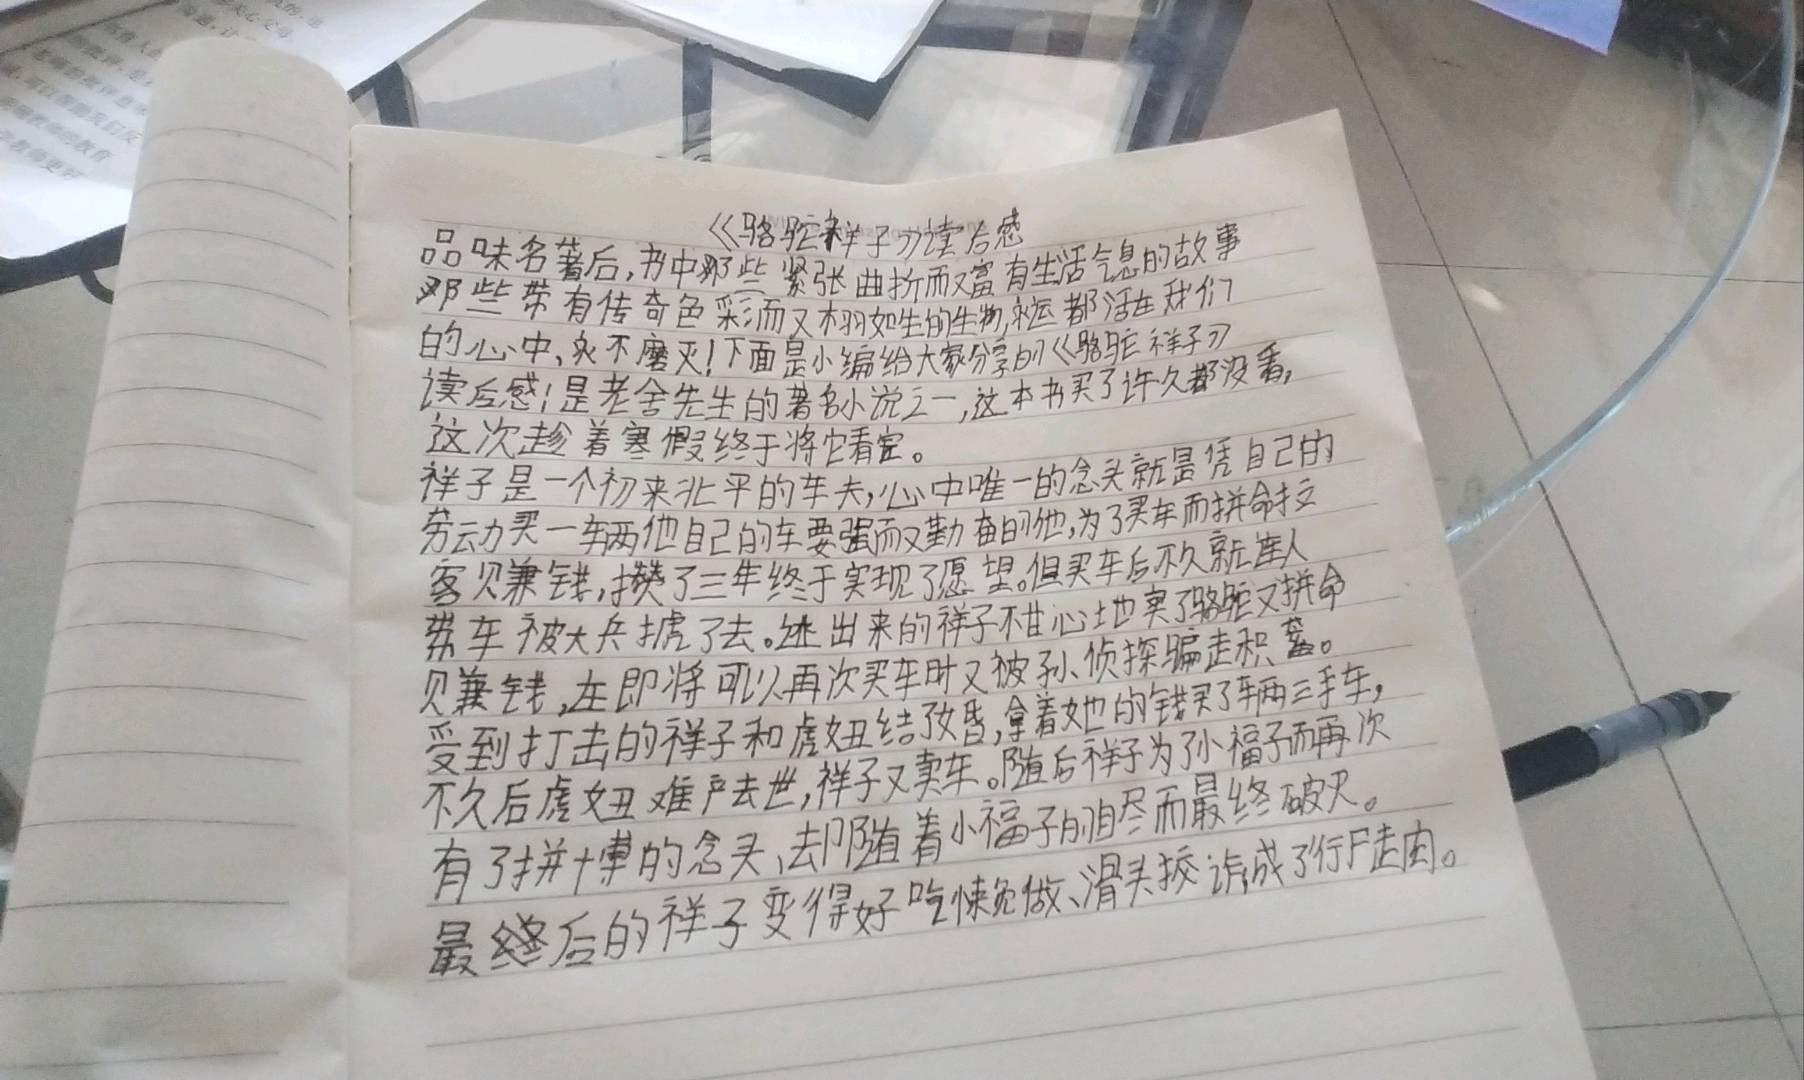 《骆驼祥子》读后感
品味名著后,书中那些紧张曲折而又富有生活气息的故事
那些带有传奇色彩而又栩如生的生物,永远都活在我们
的心中、永不磨灭!下面是小编给大家分享的《骆驼祥子》
读后感!是老舍先生的著名小说之一,这本书买了许久都没看,
这次趁着寒假终于将它看完。
祥子是一个初来北平的车夫,心中唯一的念头就是凭自己的
劳动买一车两他自己的车要强而又勤奋的他,为了买车而拼命拉
客贝兼钱,攒了三年终于实现了愿望。但买车后不久就连人
带车被大兵掳了去。逃出来的祥子不甘心地卖了骆驼又拼命
贝兼钱,在即将可以再次买车时又被孙侦探骗走积蓄。
受到打击的祥子和虎妞结了婚,拿着她的钱买了车两二手车,
不久后虎妞难产去世,祥子又卖车。随后祥子为了小福子而再次
有了拼博的念头、却随着小福子的自尽而最终破灭。
最终后的祥子变得好吃懒做、滑头狡诈,成了行尸走肉。